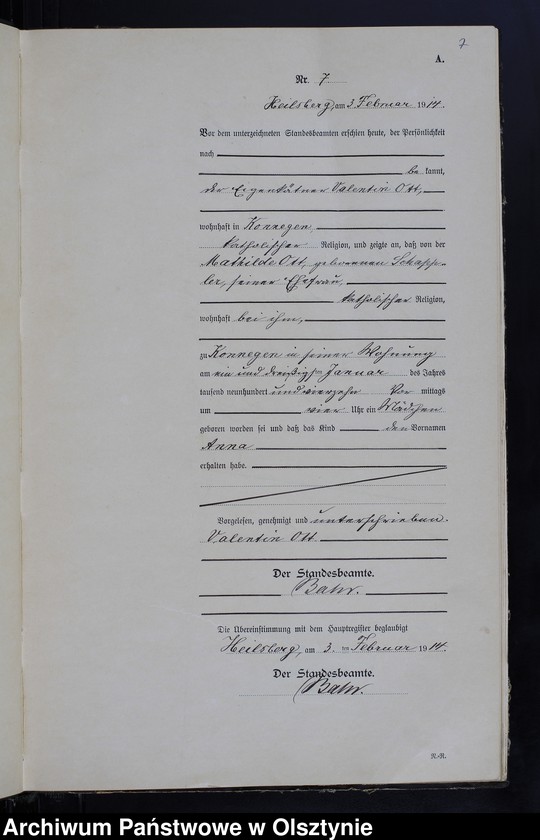 7
A.
Nr. 7.
Heilsberg, am 3. Februar 1914.
Vor dem unterzeichneten Standesbeamten erschien heute, der Persönlichkeit
nach
be kannt,
der Eigenkätner Valentin Ott,
wohnhaft in Konnegen,
katholischer Religion, und zeigte an, daß von der
Mathilde Ott, geborenen Schaff-
ler, seiner Ehefrau,
katholischer Religion,
wohnhaft bei ihm,
zu Konnegen in seiner Wohnung
am ein und dreißigsten Januar des Jahres
tausend neunhundert und vierzehn Vor mittags
um vier Uhr ein Mädchen
geboren worden sei und daß das Kind den Vornamen
Anna
erhalten habe.
Vorgelesen, genehmigt und unterschrieben.
Valentin Ott
Der Standesbeamte.
Bahr.
Die Übereinstimmung mit dem Hauptregister beglaubigt
Heilsberg, am 3. ten Februar 1914.
Der Standesbeamte.
Bahr.
R.-R.
Archiwum Państwowe w Olsztynie